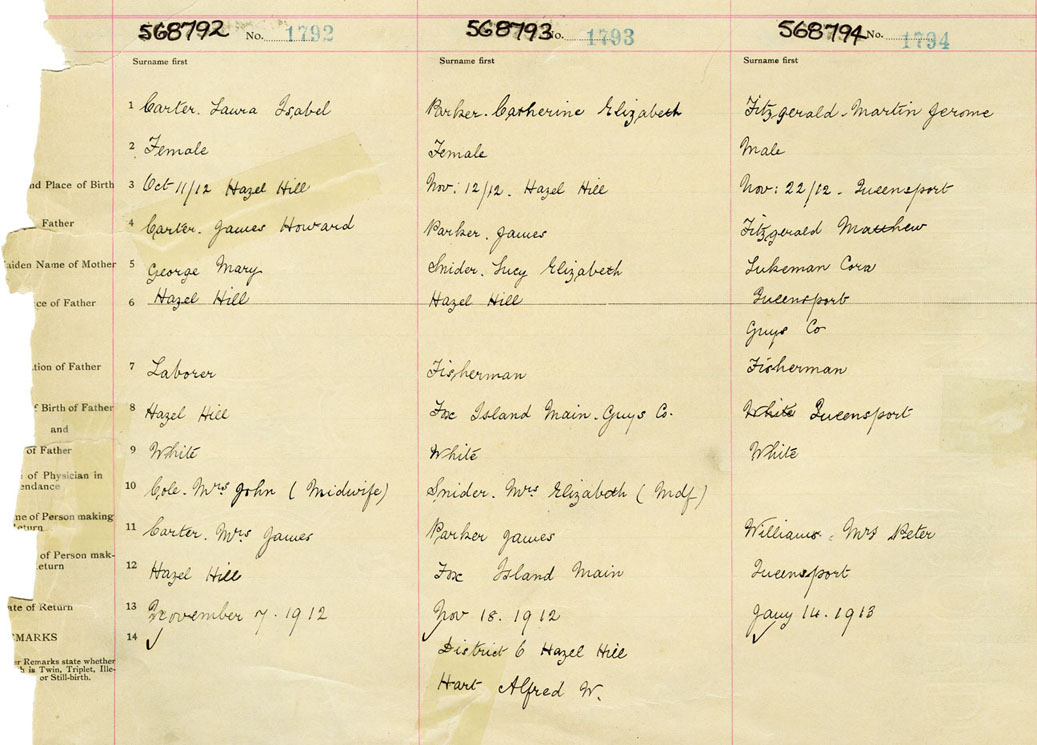 568792 No. 1792 568793 No. 1793 568794 No. 1794
Surname first Surname first Surname first
1 Carter. Laura Isabel Parker. Catherine Elizabeth Fitzgerald. Martin Jerome
2 Female Female Male
nd Place of Birth 3 Oct 11/12 Hazel Hill Nov: 12/12. Hazel Hill Nov: 22/12. Queensport
Father 4 Carter. James Howard Parker. James Fitzgerald Matthew
aiden Name of Mother 5 George Mary Snider. Lucy Elizabeth Lukeman Cora
ce of Father 6 Hazel Hill Hazel Hill Queensport
Guys Co
tion of Father 7 Laborer Fisherman Fisherman
f Birth of Father 8 Hazel Hill Fox Island Main. Guys Co. White Queensport
and
of Father 9 White White White
of Physician in
endance 10 Cole. Mrs John (Midwife) Snider. Mrs Elizabeth (Mdf)
me of Person making
eturn 11 Carter. Mrs James Parker James Williams. Mrs Peter
of Person mak-
eturn 12 Hazel Hill Fox Island Main Queensport
ate of Return 13 November 7. 1912 Nov 18. 1912 Jany 14. 1913
EMARKS 14
District 6 Hazel Hill
er Remarks state whether
h is Twin, Triplet, Ille-
or Still-birth.
Hart Alfred W.